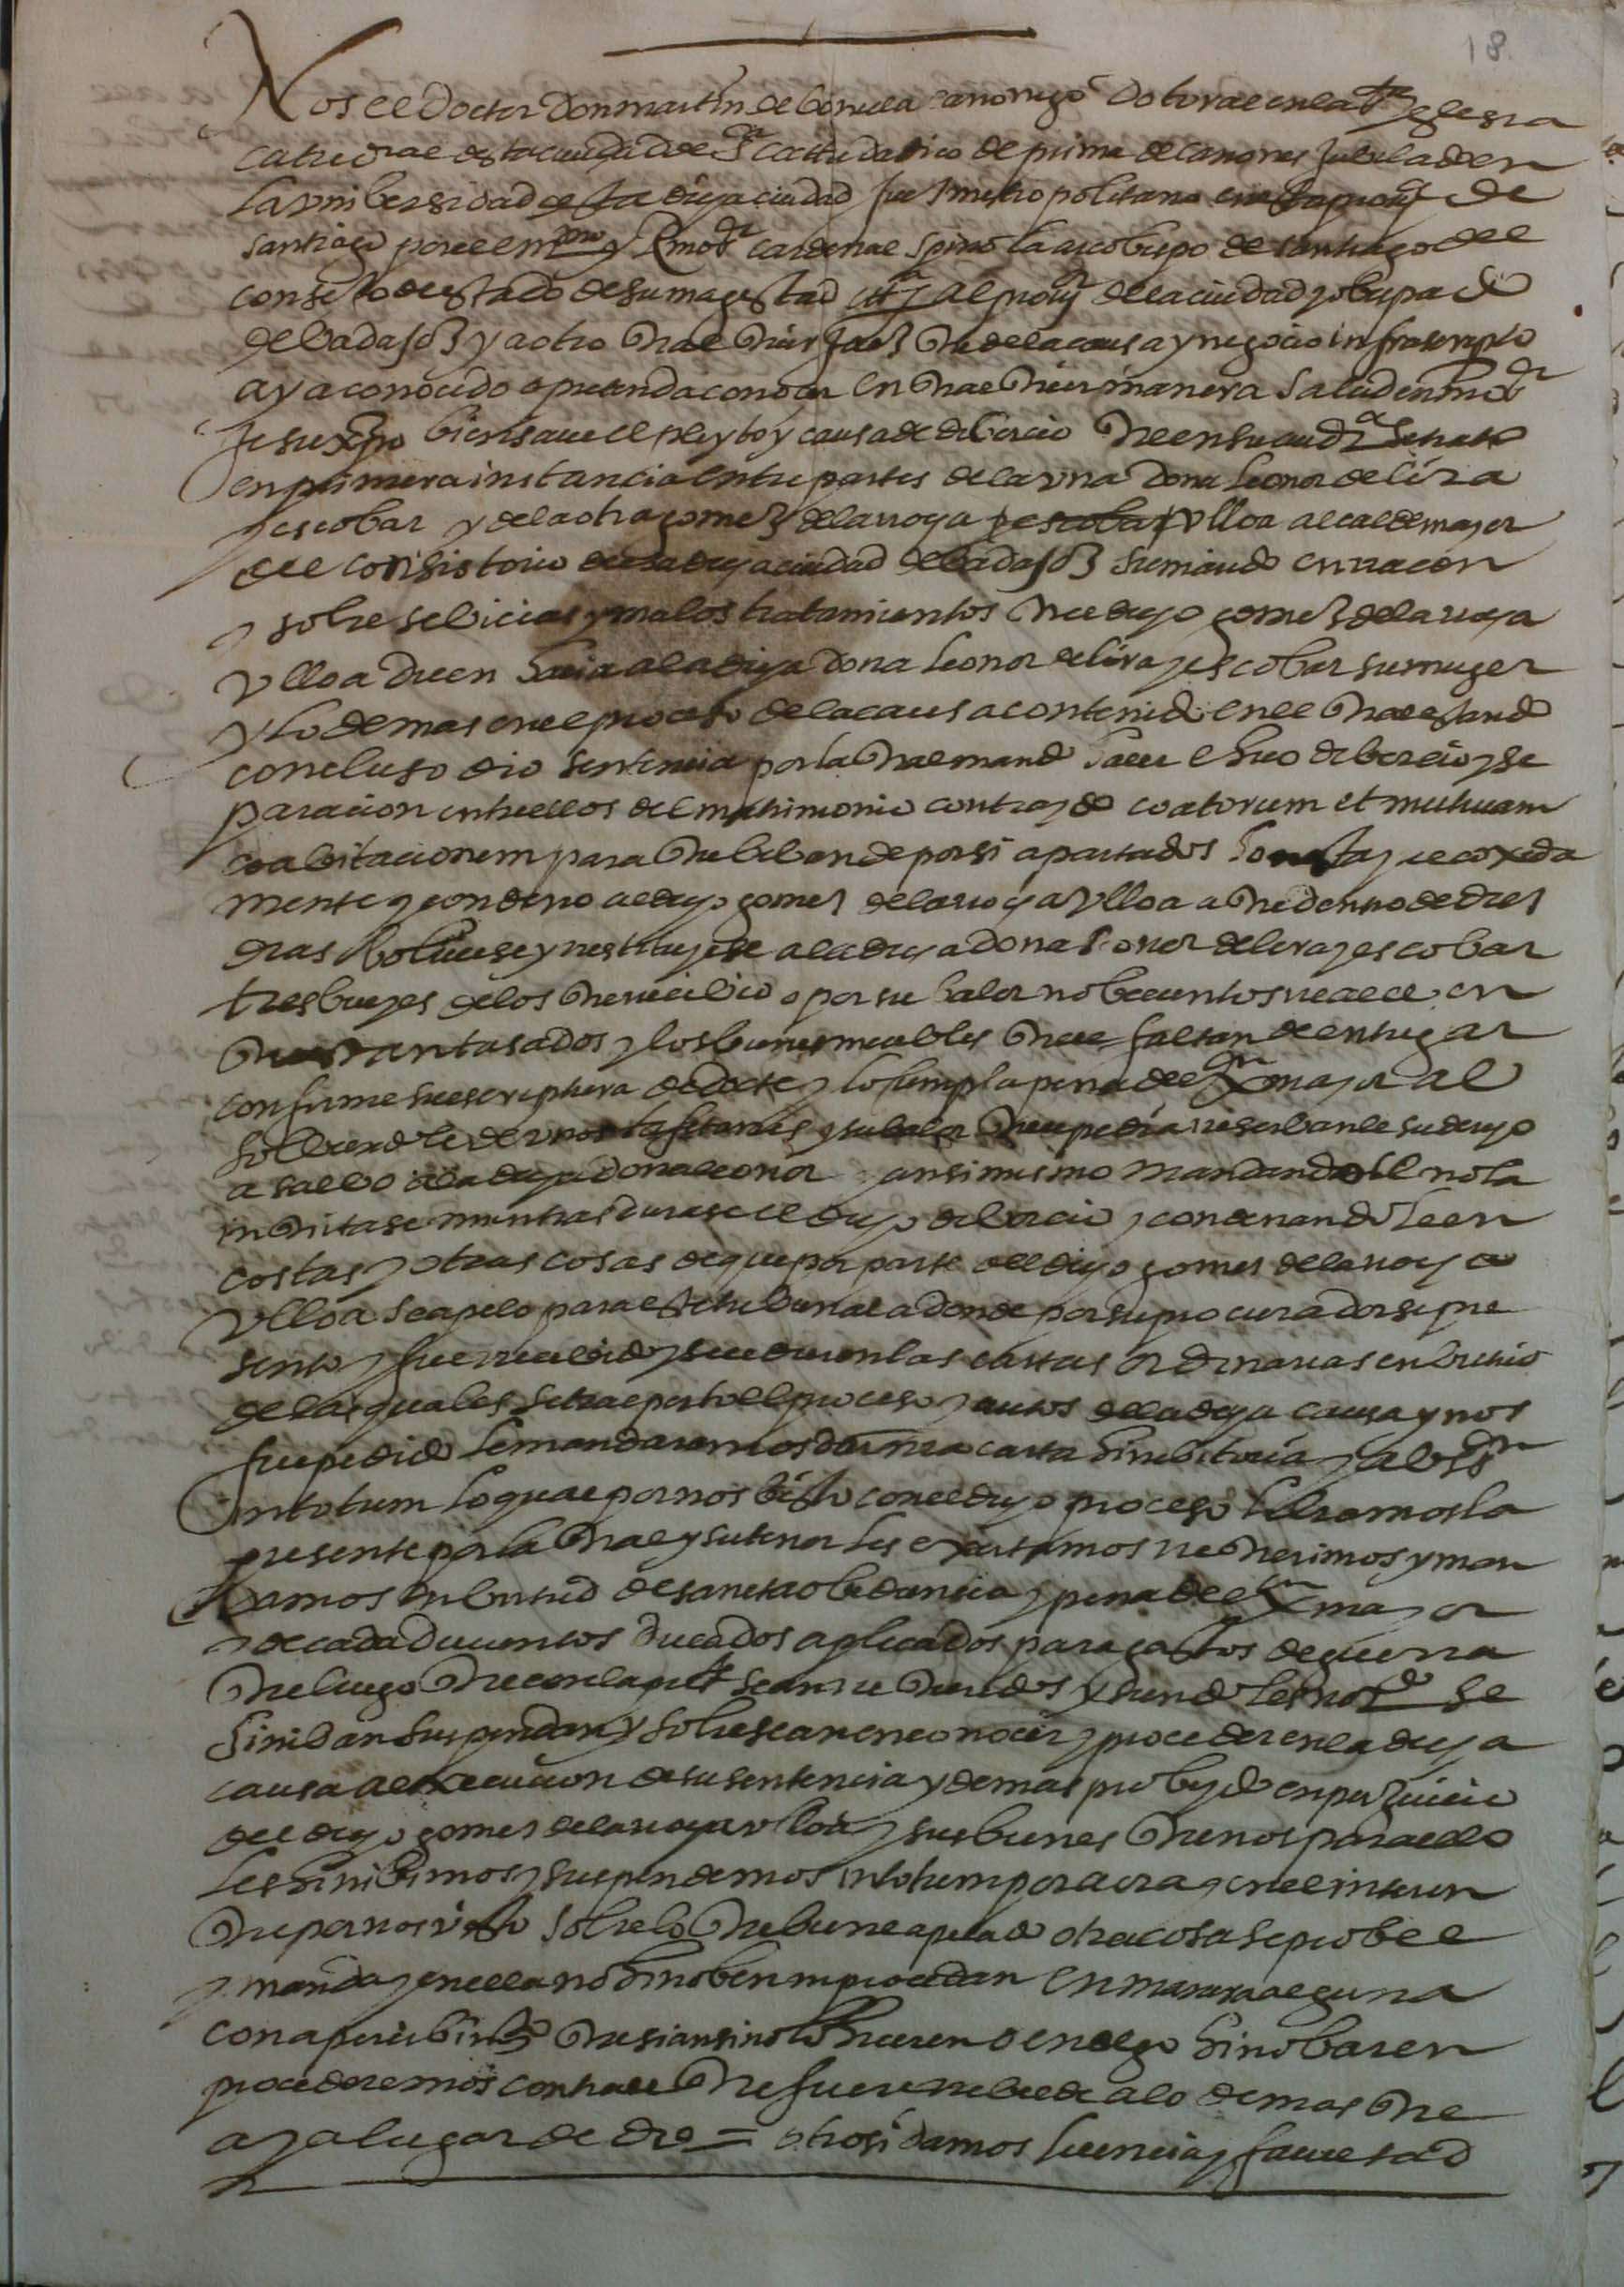 18
Nos el Doctor Don martin de bonilla canonigo Dotoral en la sta yglesia
catredral desta ciudad de Sa cathedratico de prima de canones Jubilado en
la vnibersidad desta dicha ciudad Juez metropolitano en esta prouia de
santiago por el emmo y Rmo sr cardenal spinola arcobispo de santiago del
consejo de estado de su magestad etta al prouor de la ciudad y obispado
de badajoz y a otro qual quier Juez que de la causa y negocio infrascripto
aya conocido o pretenda conocer en qual quier manera salud en nro sr
Jesuxpo bien saue el pleyto y causa de diborcio que en su auda se trato
en primera instancia entre partes de la vna Dona leonor de lira
y escobar y de la otra gomez de la rocha vlloa alcalde mayor
del consistorio de esa dicha ciudad de badajoz su marido en racon
y sobre sebicias y malos tratamientos que el dicho gomez de la rocha
vlloa dicen hacia a la dicha dona leonor de lira y escobar su muger
y lo demas en el proceso de la causa contenido en el qual estando
concluso dio sentencia por la qual mando hacer el dicho diborcio y se
paracion entre ellos del matrimonio contraydo coatorum et mutuam
coabitacionem para que biban de por si apartados honesta y recoxida
mente y condeno al dicho gomez de la rocha vlloa a que dentro de tres
dias bolbiese y restituyese a la dicha dona leonor de lira y escobar
tres bueyes de los que recibio o por su balor nobecientos reales en
que estan tasados y los bienes muebles que le faltan de entregar
conforme su escriptura de dote y lo cumpla pena de exon mayor al
solbiendole de vnos tafetanes y su balor que le pedia reserbandole su dicho
a salbo a la dicha dona leonor y ansimismo mandandole no la
inquietase mientras durase el dicho diborcio y condenandole en
costas y otras cosas de que por parte del dicho gomez de la rocha
vlloa se apelo para este tribunal a donde por su procurador se pre
sento y fue recibido y se le dieron las cartas ordinarias en birtud
de las quales se trae por to el proceso y autos de la dicha causa y nos
fue pedido le mandaramos dar nra carta Hinibitoria y absn
in totum lo qual por nos bisto con el dicho proceso libramos la
presente por la qual y su tenor les exortamos requerimos y man
damos en birtud de santa obediencia y pena de exon mayor
y de cada ducientos ducados aplicados para gastos de guerra
que luego que con la prete sean requeridos y siendoles notdo se
hiniban suspendan y sobresean en conocer y proceder en la dicha
causa a execucion de su sentencia y demas probeydo en perjuicio
del dicho gomez de la rocha vlloa y sus bienes que nos para ello
les hinibimos y suspendemos in totum por aora y en el interin
que por nos visto sobre lo que biene apelado otra cosa se probee
y manda y en ella no hinoben ni procedan en manera alguna
con apercibimto que si ansi no lo hicieren o en algo hinobaren
procederemos contra el que fuere rebelde a lo demas que
aya lugar de dro = otrosi damos licencia y facultad